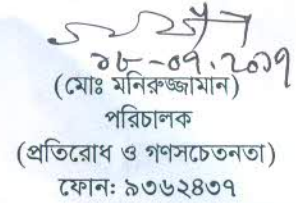 ১৮-০৭.২০১৭
(মোঃ মনিরুজ্জামান)
পরিচালক
(প্রতিরোধ ও গণসচেতনতা)
ফোন: ৯৩৬২৪৩৭